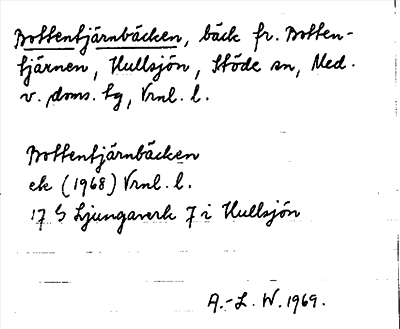 Bottentjärnbäcken, bäck fr. Botten-
tjärnen, Hullsjön, Stöde sn, Med.
v. doms. tg, Vrnl. l.
Bottentjärnbäcken
ek (1968) Vrnl. l.
17 G Ljungaverk 7 i Hullsjön
A.-L. W. 1969.